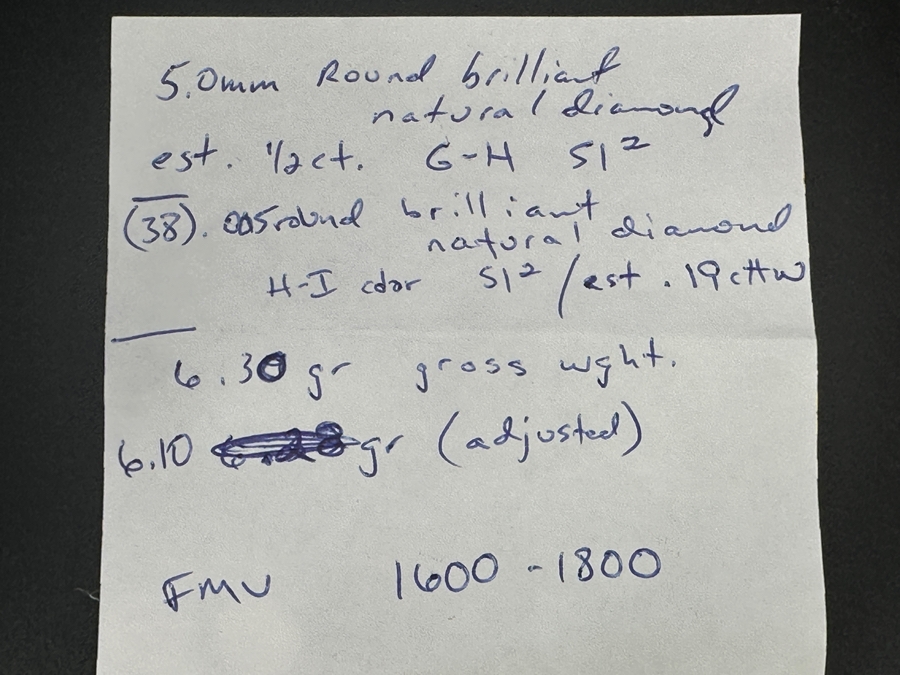 5.0mm Round brilliant
natural diamond
est. 1/2 ct. G-H SI²
(38) .005 round brilliant
natural diamond
H-I color SI² / est .19 cttw
6.30 gr gross wght.
6.10 gr (adjusted)
FMV 1600 - 1800